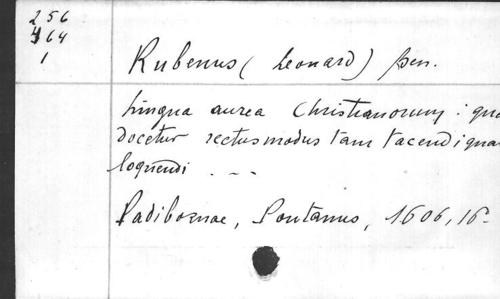 256
464
1
Rubenus ( Leonard) ben.
Lingua aurea Christianorum : qua
docetur rectus modus tam tacendi quam
loquendi . . .
Padibornae, Pontanus, 1606, 16º